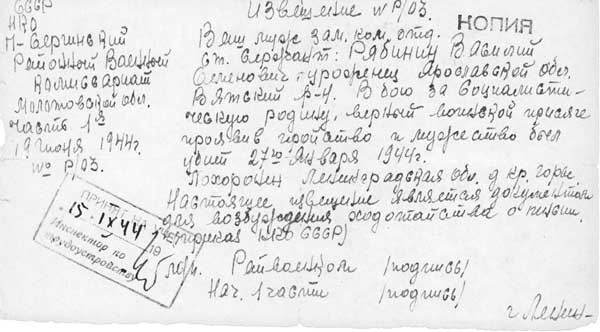 СССР
НКО
П-Сергинский
Районный Военный
Комиссариат
Молотовской обл.
Часть 1я
19 июня 1944г.
№ Р/03.
Извещение № Р/03.
КОПИЯ
Ваш муж зам. ком. отд.
ст. сержант: Рябинин Василий
Семенович уроженец Ярославской обл.
Вятский р-н. В бою за социалисти-
ческую родину, верный воинской присяге
проявив геройство и мужество был
убит 27го Января 1944г.
Похоронен Ленинградская обл. д кр. горы.
Настоящее извещение является документом
для возбуждения ходотайства о пенсии.
НКО СССР)
ПРИНЯТ НА
15 IX 44
19
Инспектор по
трудоустройству
Райвоенком /подпись/
Нач. 1 части /подпись/
г